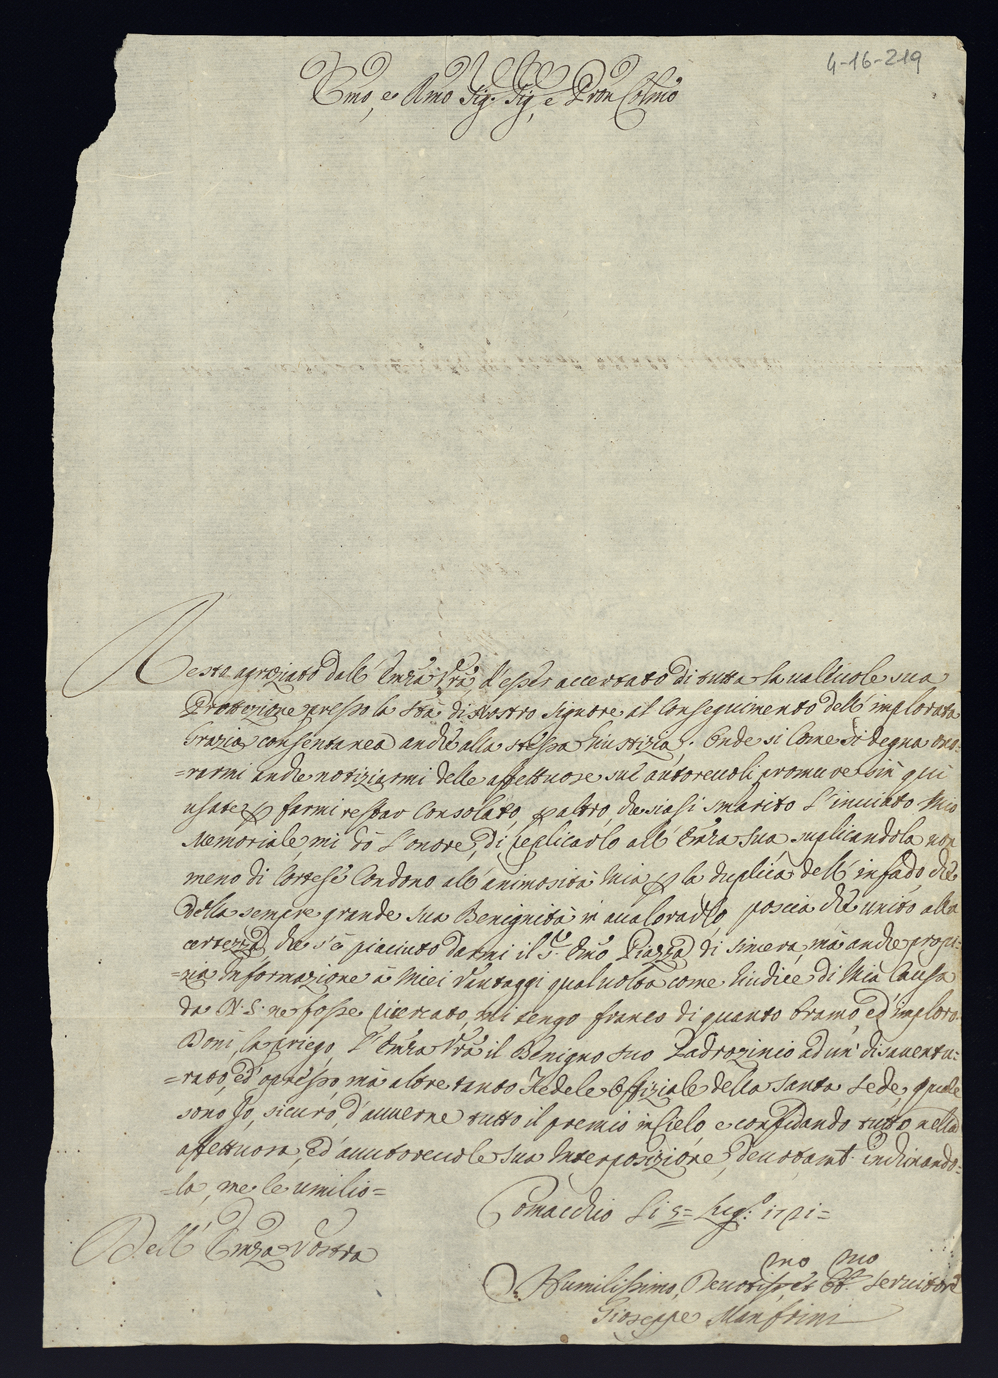 4-16-219
Emo, e Rmo Sig. Sig, e Pron Colmo
Resta agraziato dall' Emza Vra d'esser accertato di tutta la valleuole sua
Protezzione presso la Stà di Nostro Signore al Conseguimento dell' implorata
Grazia consentanea anche alla stessa Giustizia; Onde si Come si degna ono=
=rarmi anche notiziarmi delle affettuose sue autoreuoli promure sin qui
usate p farmi restar Consolato, paltro, che siasi smarito l'inuiato Mio
Memoriale, mi dò l'onore, di replicarlo all' Emza sua suplicandola non
meno di Cortese Condono all' animosità Mia p la duplica dell' infado che
della sempre grande sua Benignità in aualorarlo poscia che unito alla
certezza, che s'è piaciuto darmi il S. Emo Piazza di sincera, mà anche propi=
=zia Informazione à Miei Vantaggi qual uolta come Giudice di Mia Causa
da N. S. ne fosse ricercato, mi tengo franco di quanto bramo, ed imploro.
Doni, la priego, l'Emza Vra il Benigno suo Padrozinio ad un' disauentu=
=rato, ed' opresso, mà altre tanto Fedele Offiziale della Santa Sede, quale
sono Io, sicuro, d'auuerne tutto il premio in Cielo, e confidando tutto nella
affettuosa, ed' auutoreuole sua Interposizione, deuotamt. inchinando=
=la, me le umilio=
Comacchio Li 5= Lug. 1721=
Dell' Emza Vostra
Humilissimo, Deuotiss.mo, et Obb.mo Seruitore
Gioseppe Manfrini